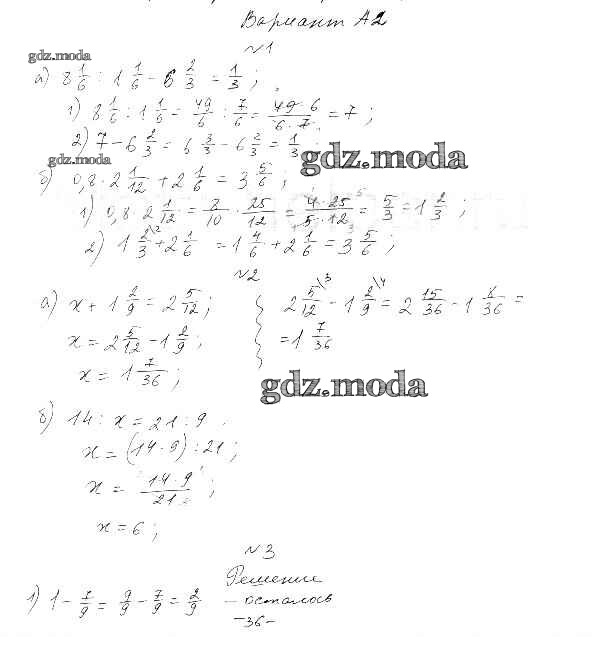 Вариант А2
№1
gdz.moda
а) 8 1/6 : 1 1/6 - 6 2/3 = 1/3 ;
1) 8 1/6 : 1 1/6 = 49/6 : 7/6 = 49·6/6·7 = 7 ;
2) 7 - 6 2/3 = 6 3/3 - 6 2/3 = 1/3
gdz.moda
gdz.moda
б) 0,8 · 2 1/12 + 2 1/6 = 3 5/6 ;
1) 0,8 · 2 1/12 = 8/10 · 25/12 = 4·25/5·12 = 5/3 = 1 2/3 ;
2) 1 2/3 + 2 1/6 = 1 4/6 + 2 1/6 = 3 5/6 ;
№2
а) x + 1 2/9 = 2 5/12 ;
x = 2 5/12 - 1 2/9 ;
x = 1 7/36 ;
2 5/12 - 1 2/9 = 2 15/36 - 1 8/36 =
= 1 7/36
gdz.moda
б) 14 : x = 21 : 9
x = (14·9) : 21 ;
x = 14·9/21 ;
x = 6 ;
№3
Решение
1) 1 - 7/9 = 9/9 - 7/9 = 2/9 - осталось
-36-